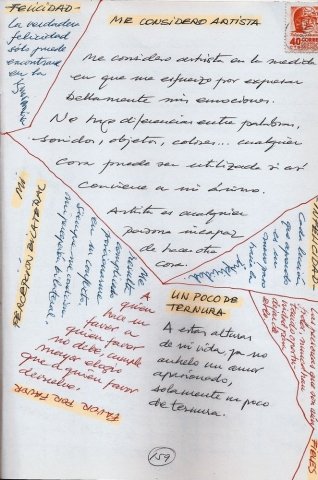 FELICIDAD
La verdadera
felicidad
sólo puede
encontrarse
en la
ignorancia
ME CONSIDERO ARTISTA
Me considero artista en la medida
en que me esfuerzo por expresar
bellamente mis emociones.
No hago diferencias entre palabras,
sonidos, objetos, colores... cualquier
cosa puede ser utilizada si así
conviene a mi ánimo.
Artista es cualquier
persona incapaz
de hacer otra
cosa.
40
CORREOS
INFELICIDAD
Cada lección
que aprendo
es un
nuevo paso
hacia la
MI
PERCEPCIÓN BILATERAL
Me
resulta
complicado
posicionarme
en un conflicto,
siempre me domina
mi percepción bilateral.
FAVOR POR FAVOR
A
quien
hace un
favor a
quien favor
no debe, cumple
mayor elogio
que a quien favor
devuelve.
UN POCO DE
TERNURA
A estas alturas
de mi vida, ya no
anhelo un amor
apasionado,
solamente un poco
de ternura.
FIELES
Las personas que son
159